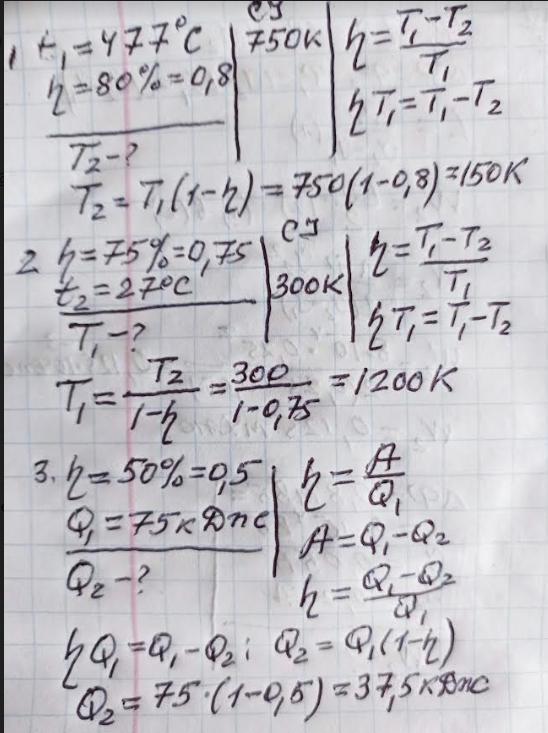 СИ
1 t₁ = 477°C | 750K | η = (T₁ - T₂)/T₁
η = 80% = 0,8 | ηT₁ = T₁ - T₂
T₂ - ?
T₂ = T₁(1 - η) = 750(1 - 0,8) = 150K
СИ
2 η = 75% = 0,75 | η = (T₁ - T₂)/T₁
t₂ = 27°C | 300K | ηT₁ = T₁ - T₂
T₁ - ?
T₁ = T₂/(1 - η) = 300/(1 - 0,75) = 1200K
3. η = 50% = 0,5 | η = A/Q₁
Q₁ = 75 кДж | A = Q₁ - Q₂
Q₂ - ? | η = (Q₁ - Q₂)/Q₁
ηQ₁ = Q₁ - Q₂; Q₂ = Q₁(1 - η)
Q₂ = 75 · (1 - 0,5) = 37,5 кДж